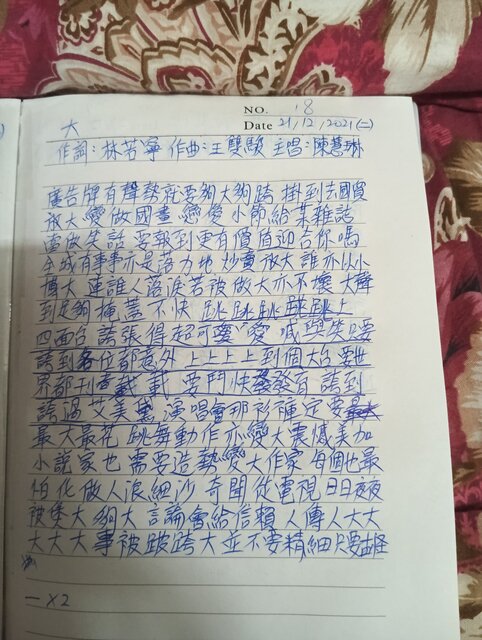 NO. 18
大
Date 21/12/2021(二)
作詞:林若寧 作曲:王雙駿 主唱:陳慧琳
廣告牌有聲勢就要夠大夠跨 掛到去國貿
放大變做國畫 戀愛小節給某雜誌
當做笑話 要報到更有價值迎合你嗎
全城有事事亦是落力地炒賣放大 誰亦以小
博大 連誰人落淚若被做大亦不壞 大聲
到足夠掩蓋不快 跳跳跳跳跳上
四面台 誇張得超可愛 愛 成與失只要
誇到各位都意外 上上上上到個大台 要世
界都刊載 要鬥快發育 誇到
誇過艾美黛 演唱會那彩褲定要
最大最花 跳舞動作亦變大震憾美加
小說家也需要造勢變大作家 每個也最
怕化做人浪細沙 奇聞從電視日日夜夜
誇大夠大 言論會給信賴 人傳人大大
大大大事被誇大並不要精細 只要古怪
一 x2